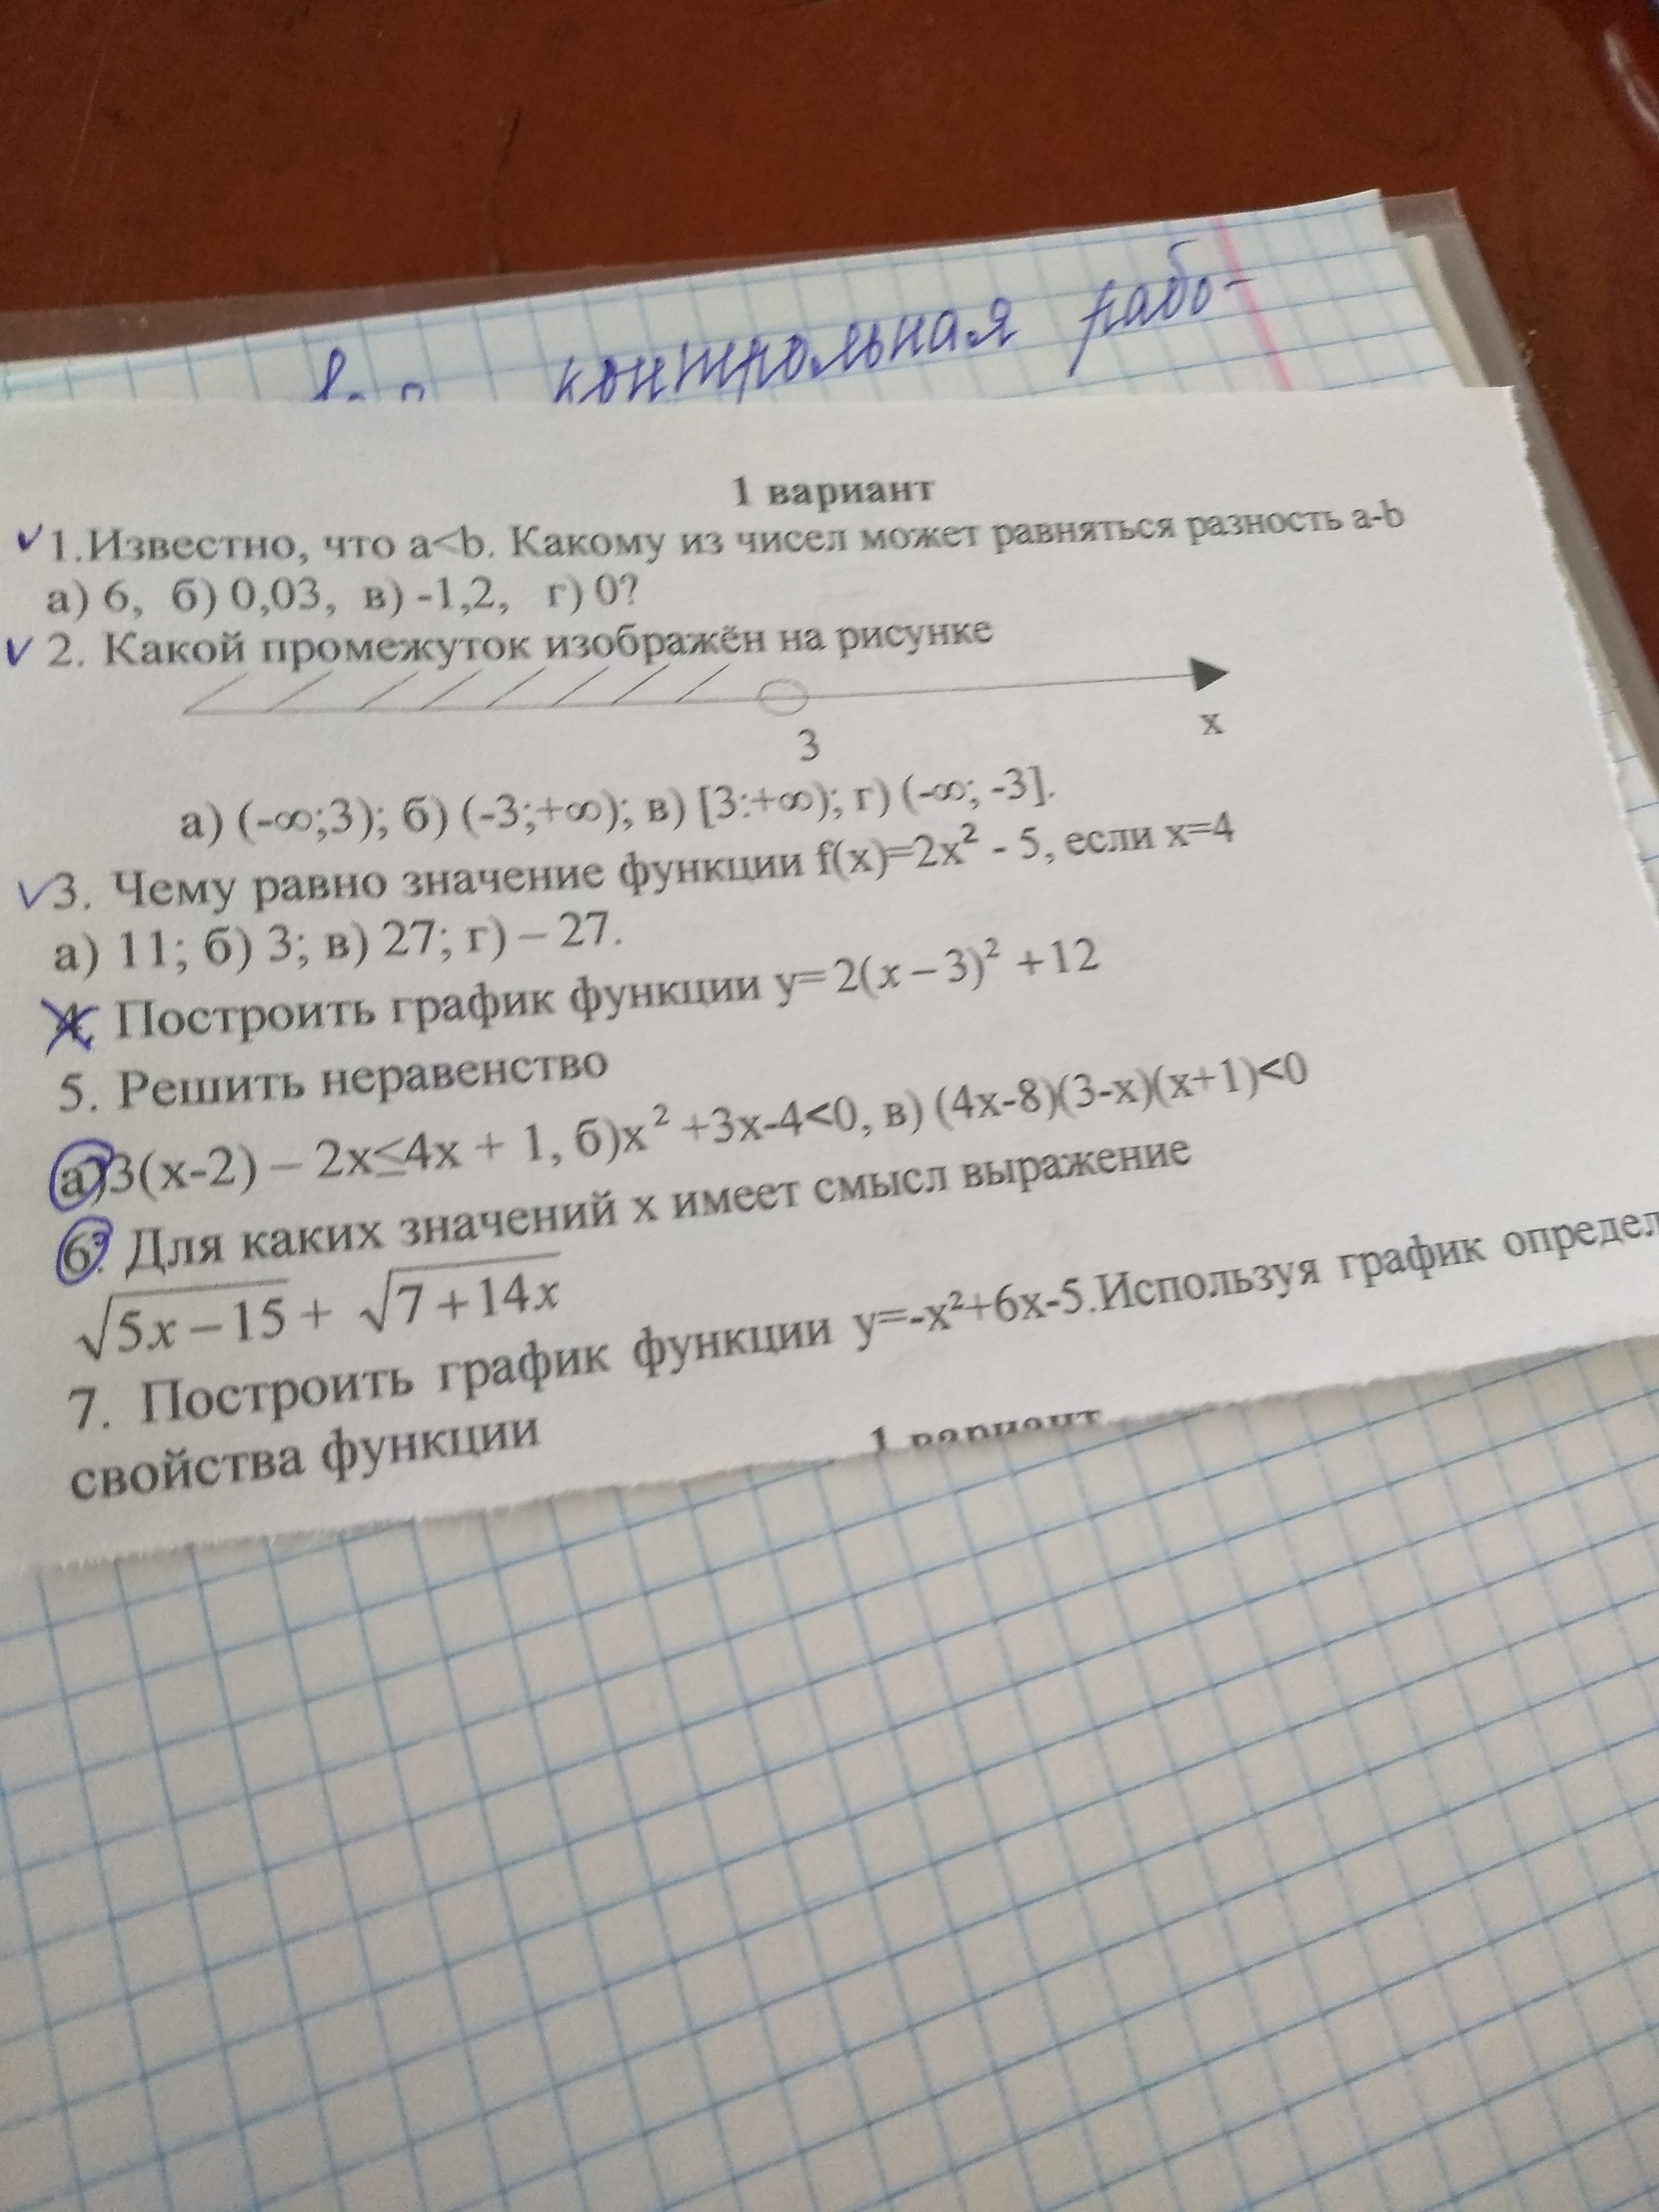 контрольная рабо-
1 вариант
1.Известно, что a<b. Какому из чисел может равняться разность a-b
а) 6, б) 0,03, в) -1,2, г) 0?
2. Какой промежуток изображён на рисунке
3
x
а) (-∞;3); б) (-3;+∞); в) [3:+∞); г) (-∞; -3].
3. Чему равно значение функции f(x)=2x² - 5, если x=4
а) 11; б) 3; в) 27; г) – 27.
4. Построить график функции y=2(x – 3)² +12
5. Решить неравенство
а)3(x-2) – 2x≤4x + 1, б)x² +3x-4<0, в) (4x-8)(3-x)(x+1)<0
6. Для каких значений x имеет смысл выражение
√5x – 15 + √7 +14x
7. Построить график функции y=-x²+6x-5.Используя график определ
свойства функции
1 вариант